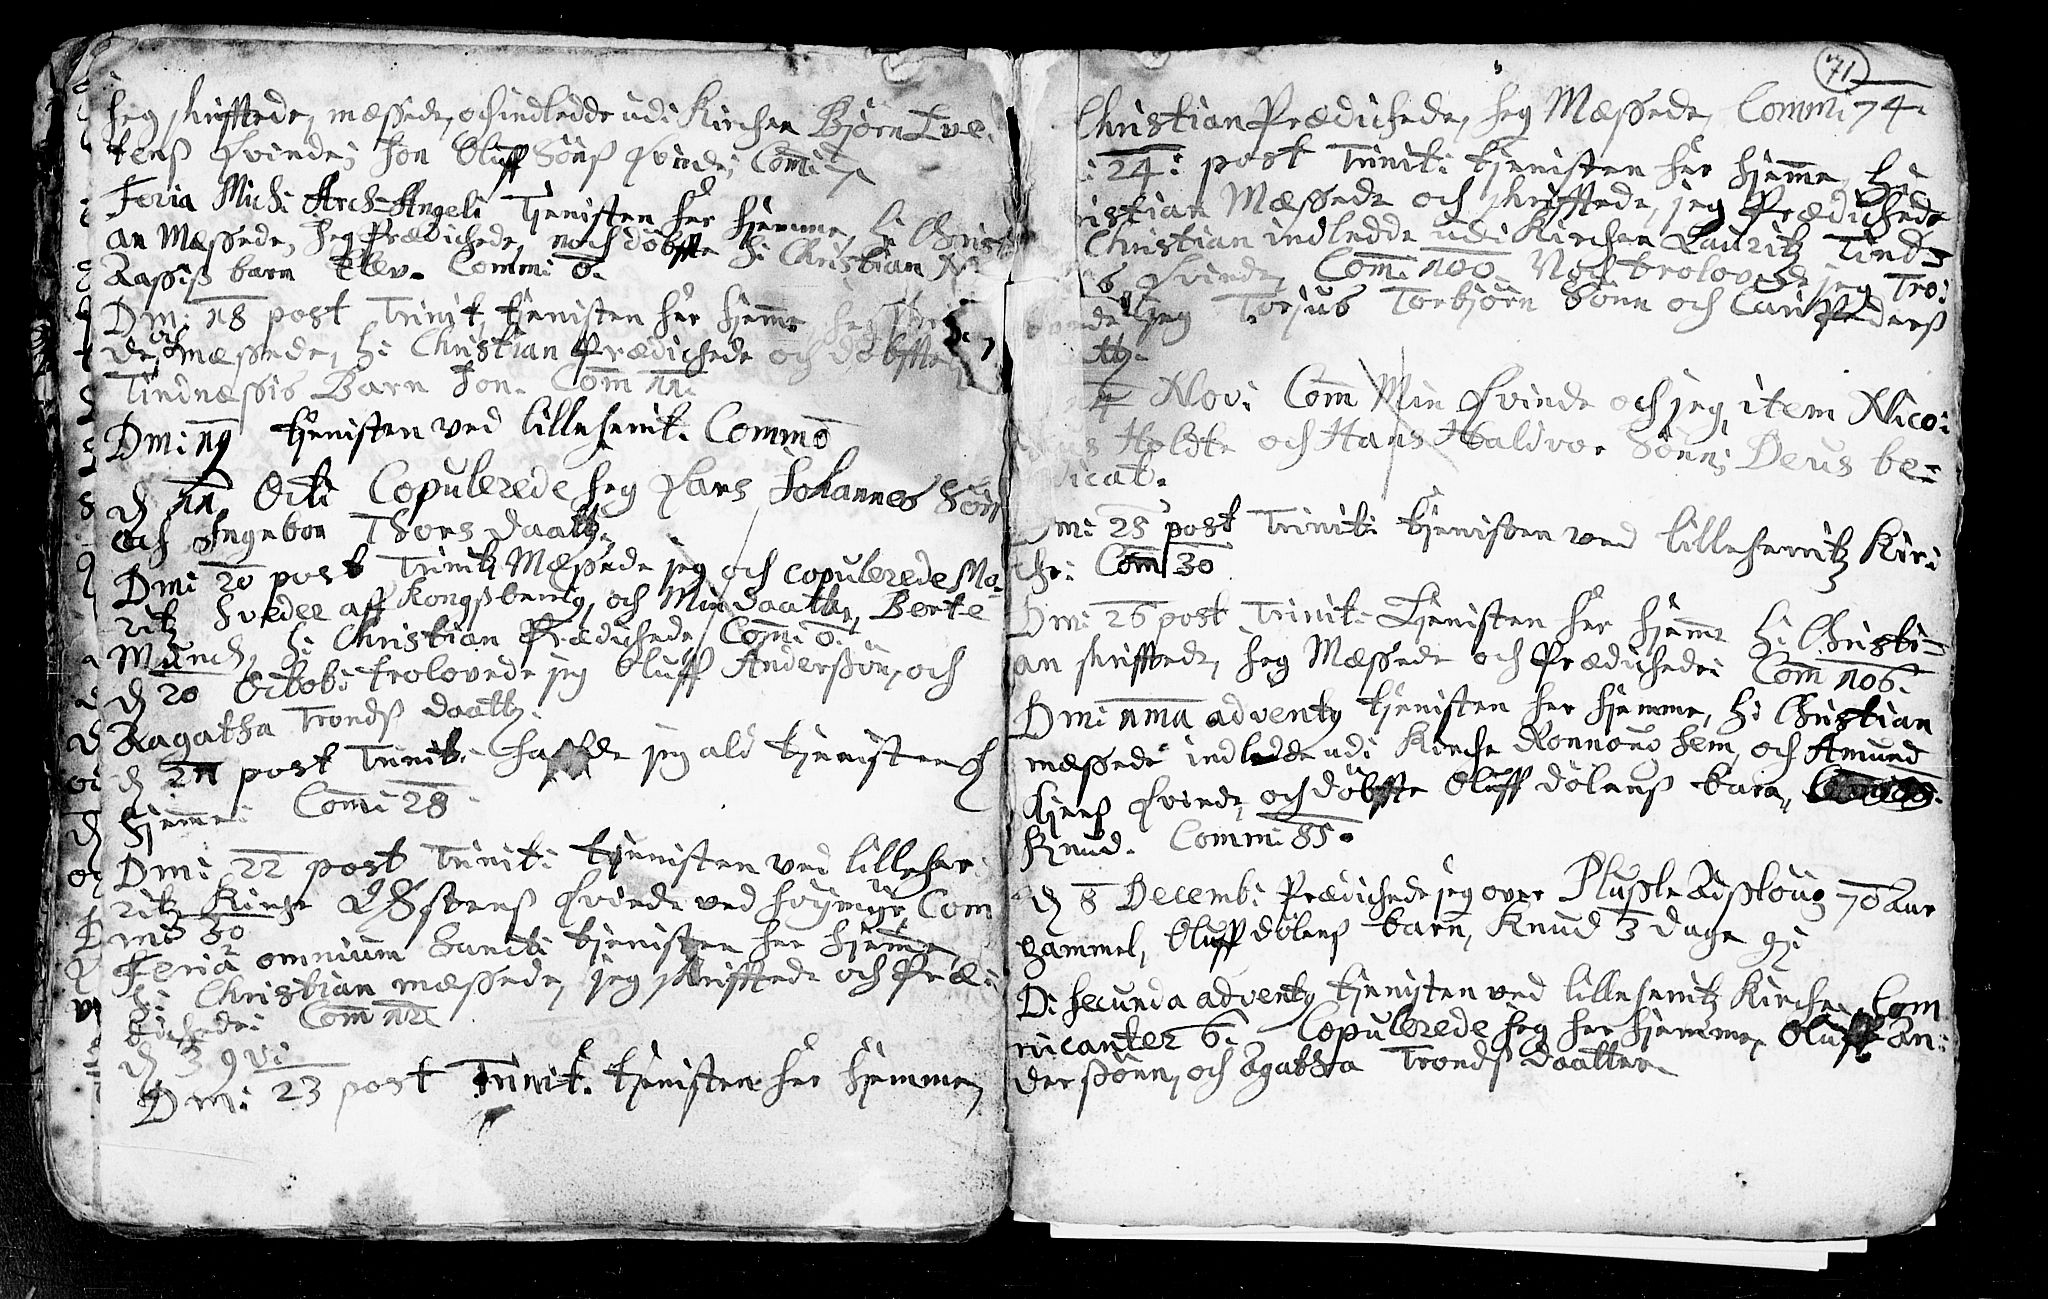 jeg skrifftede, mæssede, och indledde udi Kirchen Bjørn Tve,
tens Qvinde; Jon Oluff Söns Qvinde; Comi
Feria Michi Arch-Angeli Tjenisten her hjemme, H: Christ
an Mæssede, Jeg Prædichede, noch döbste H: Christian
barn Elev. Commi 0.
Dm: 18 post Trinit, tjenisten her hjeme, jeg
de, och mæssede, H: Christian Prædichede och döbste
Tindnæssis Barn Jon. Com 11.
Dmi 19 tjenisten ved lilleherrit. Comm 0
D 11 Octi Copulerede jeg Lars Johannes Sön
och Ingebor Thors daatter.
Dmi 20 post Trinit, Mæssede jeg och copulerede Mo-
ritz Sveder aff Kongsberig, och Min daatter, Berte
Munch, H: Christian Prædichede Comi 0.
D 20 Octobi trolovede jeg Oluff Andersön, och
Ragatha Tronds daatter.
D 21 post Trinit. haffde jeg ald tjenisten
hjemme: Comi 28.
Dmi 22 post Trinit: tjenisten ved lilleher:
ritz Kirche Qvinde ved Com
30
Feria omnium Sancti tjenisten her hjemme,
H: Christian mæssede, jeg skrifftede och Præ:
dichede: Com 112
D 3 9vi
Dmi 23 post Trinit. tjenisten her hjemme,
71
Christian Prædichede, jeg Mæssede, Commi 74.
: 24: post Trinit: tjenisten her hjemme, H:
ristian Mæssede och skrifftede, jeg Prædichede
Christian indledde udi Kirchen Lauritz Tind=
Qvinde, Comi 100. Noch trolovede jeg Tro:
jeg Torjus Torbjörn Sönn och Cari Peders
Novi Com Min Qvinde och jeg, item Nico:
Holste och Hans Haldvor Sönn; Deus be-
dicat.
Dmi 25 post Trinit: tjenisten ved lilleherritz Kir:
che: Com 30
Dmi 26 post Trinit: Tjenisten her hjemme H: Christi=
an skrifftede, jeg Mæssede och Prædichede: Com 106.
Dmi 1ma adventy tjenisten her hjemme, H: Christian
mæssede indledde udi Kirche Ronnoug hem, och Amund
Qvinde, och döbste Oluff dölens barn,
Knud. Commi 85.
D 8 Decembi Prædichede jeg over 70 Aar
gammel, Oluff dölens barn, Knud 3 dage
D: secunda adventy tjenisten ved lilleherritz Kirche, Com
nicanter 6. Copulerede jeg her hjemme, Oluff An:
dersönn, och Agatha Tronds daatter.